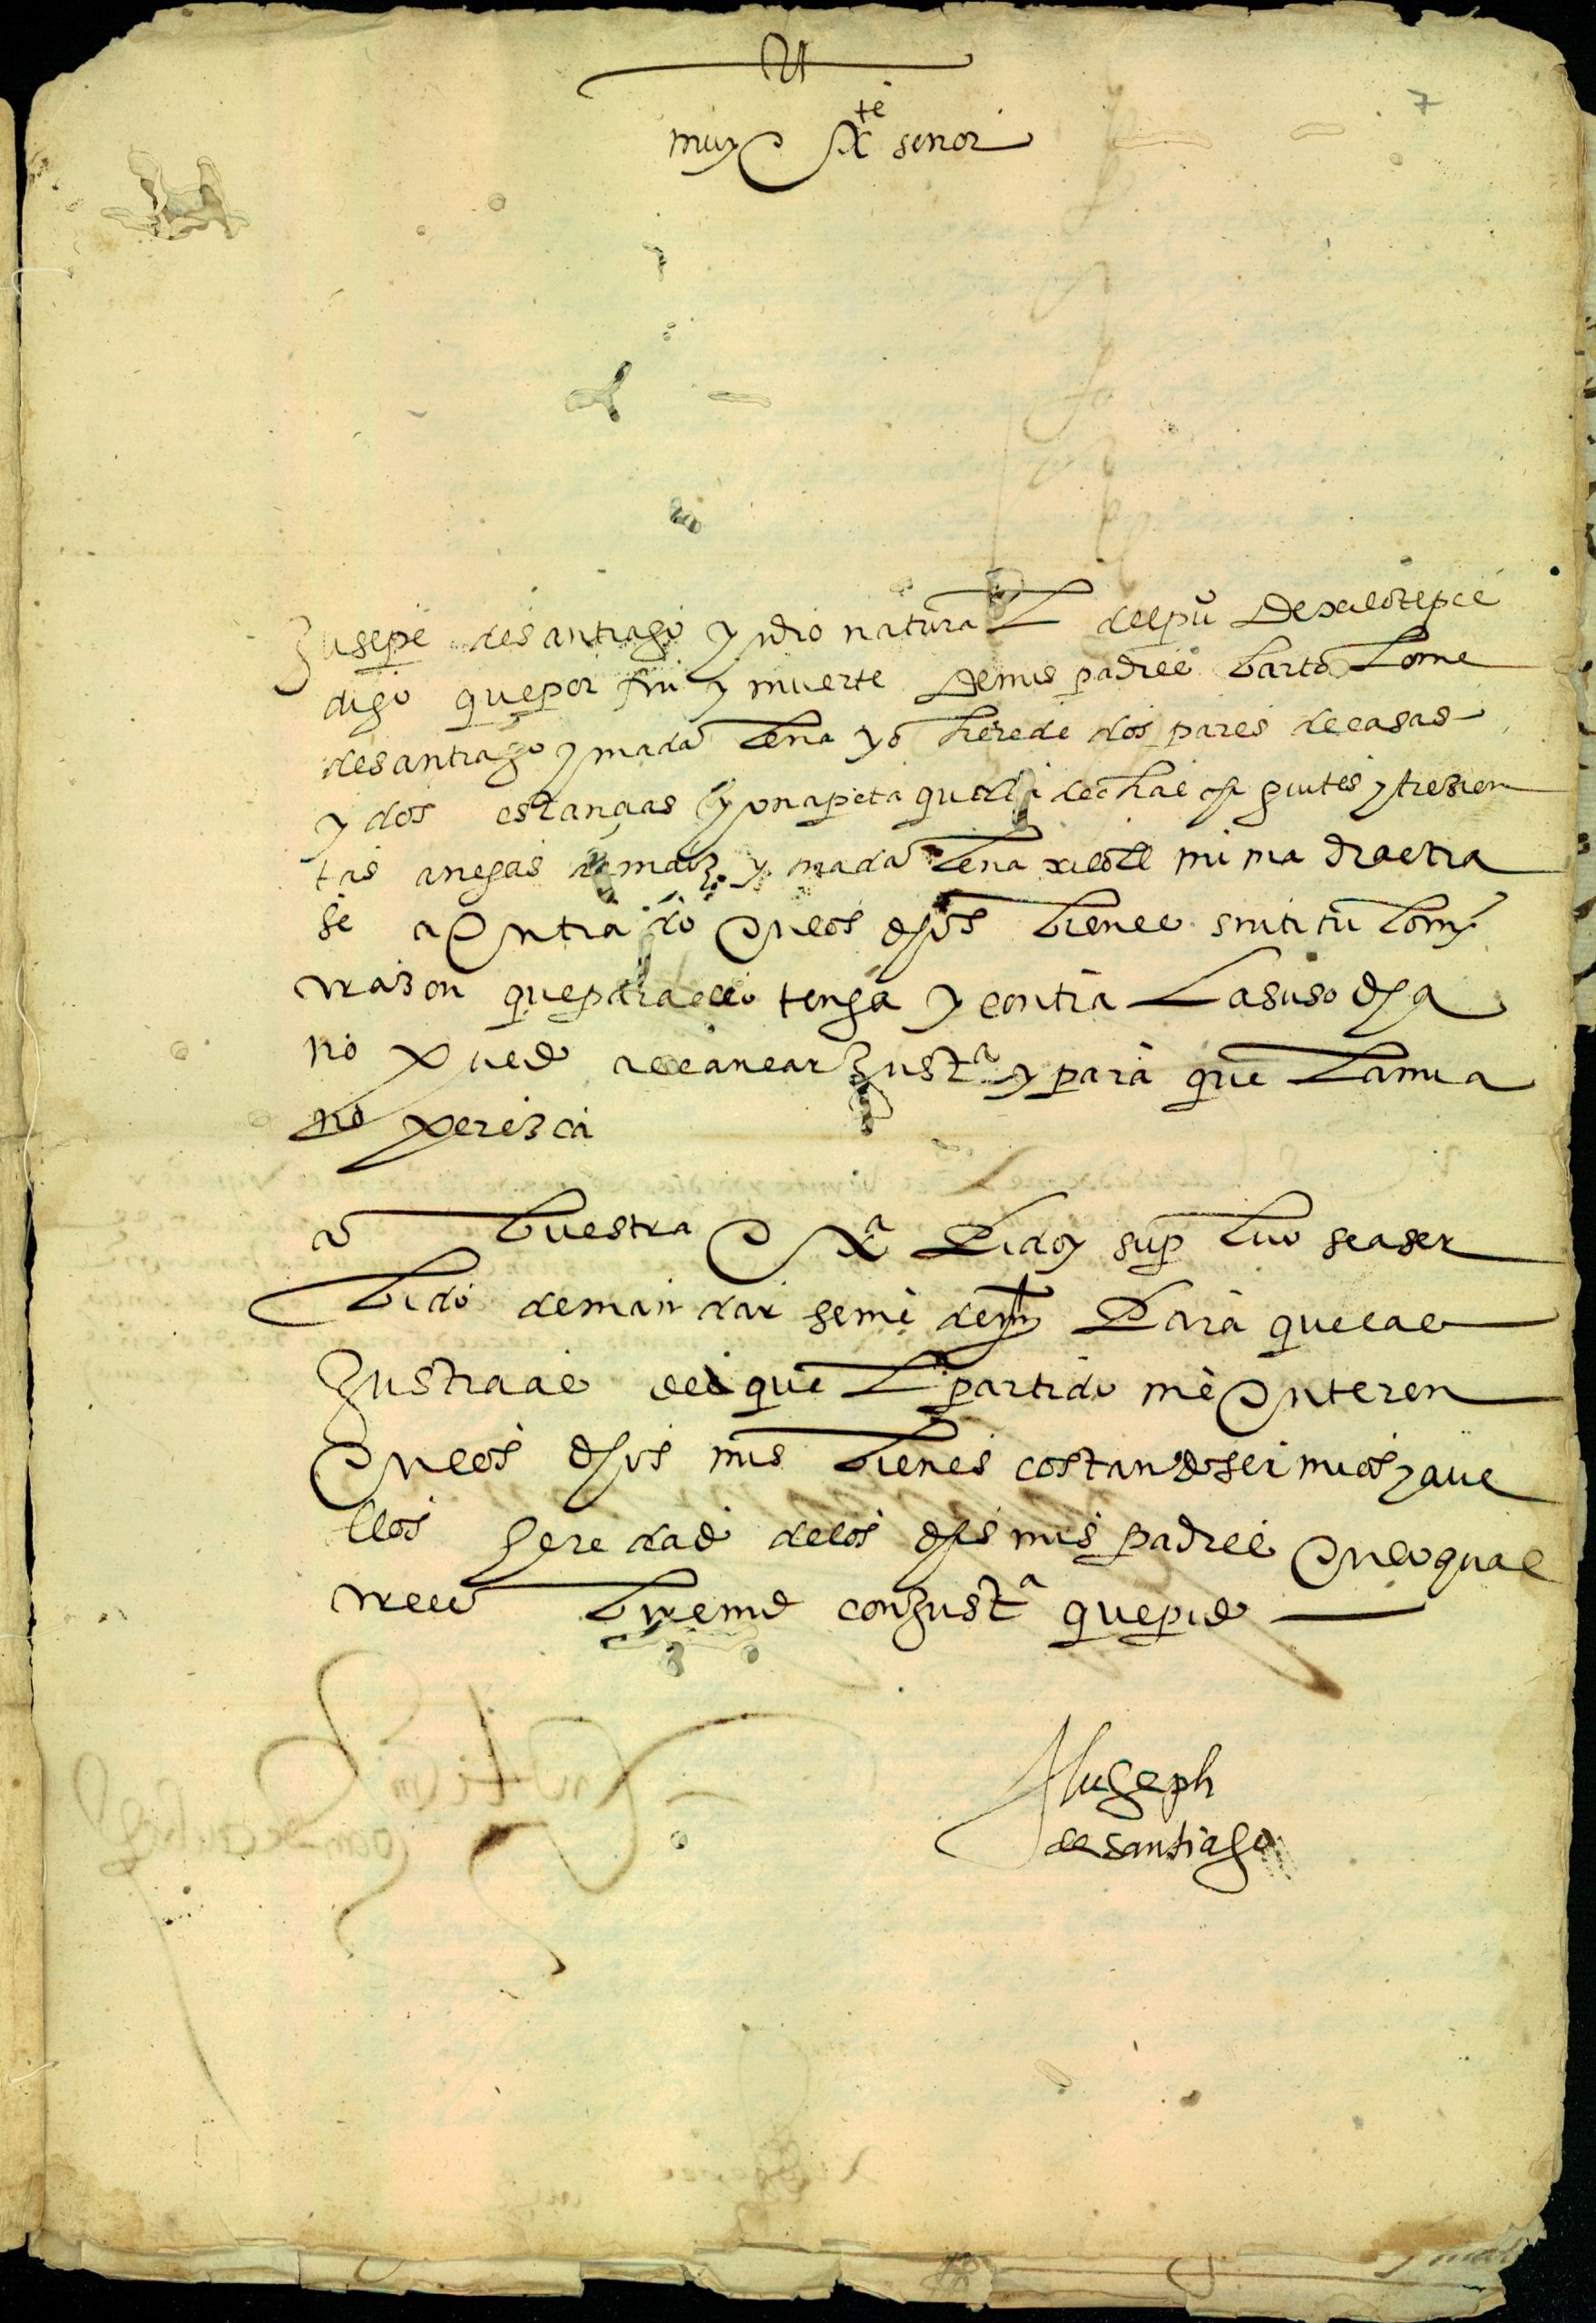 7
muy Exte señor
Jusepe de santiago yndio natural del puo de xalotepec
digo que por fin y muerte de mis padres bartolome
de santiago y madalena yo herede dos pares de casas
y dos estancias y una y trezien
tas anegas de maiz y madalena xilotl mi madrastra
se a entrado en los dhos bienes sin titulo ni
rrazon que para ello tenga y contra la suso dha
no puedo alcancar justa y para que la mia
no perezca
a vuestra exa pido y supco sea ser
bido de mandar se me de mto para que las
justicias de aquel partido me enteren
en los dhos mis bienes costando ser mios y aue
llos heredado de los dhos mis padres en lo qual
rreciuire md con justa que pido
Jhuseph
de santiago